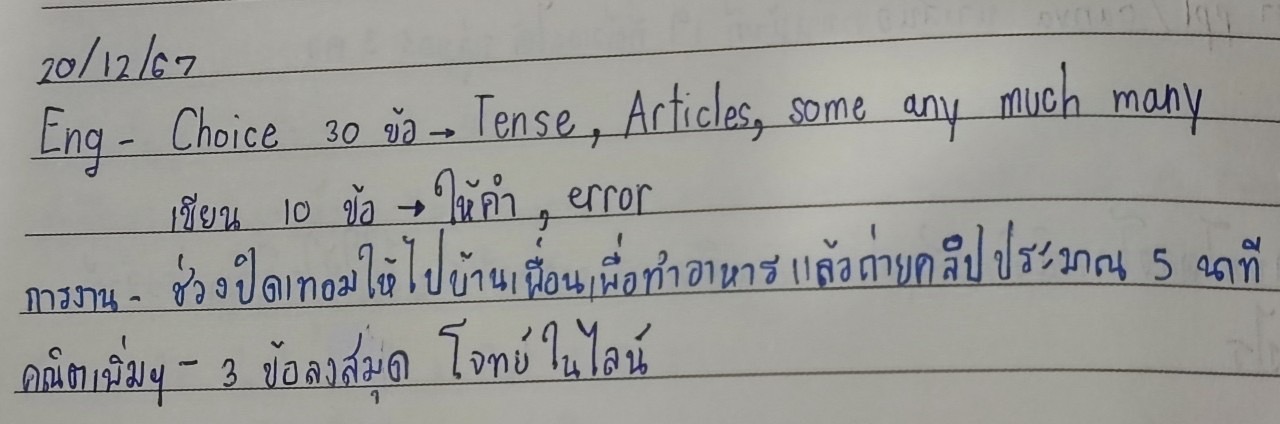 20/12/67
Eng - Choice 30 ข้อ → Tense, Articles, some any much many
เขียน 10 ข้อ → ให้คำ, error
การงาน - ช่วงปิดเทอมให้ไปบ้านเพื่อนเพื่อทำอาหารแล้วถ่ายคลิปประมาณ 5 นาที
คณิตเพิ่มฯ - 3 ข้อลงสมุด โจทย์ในไลน์